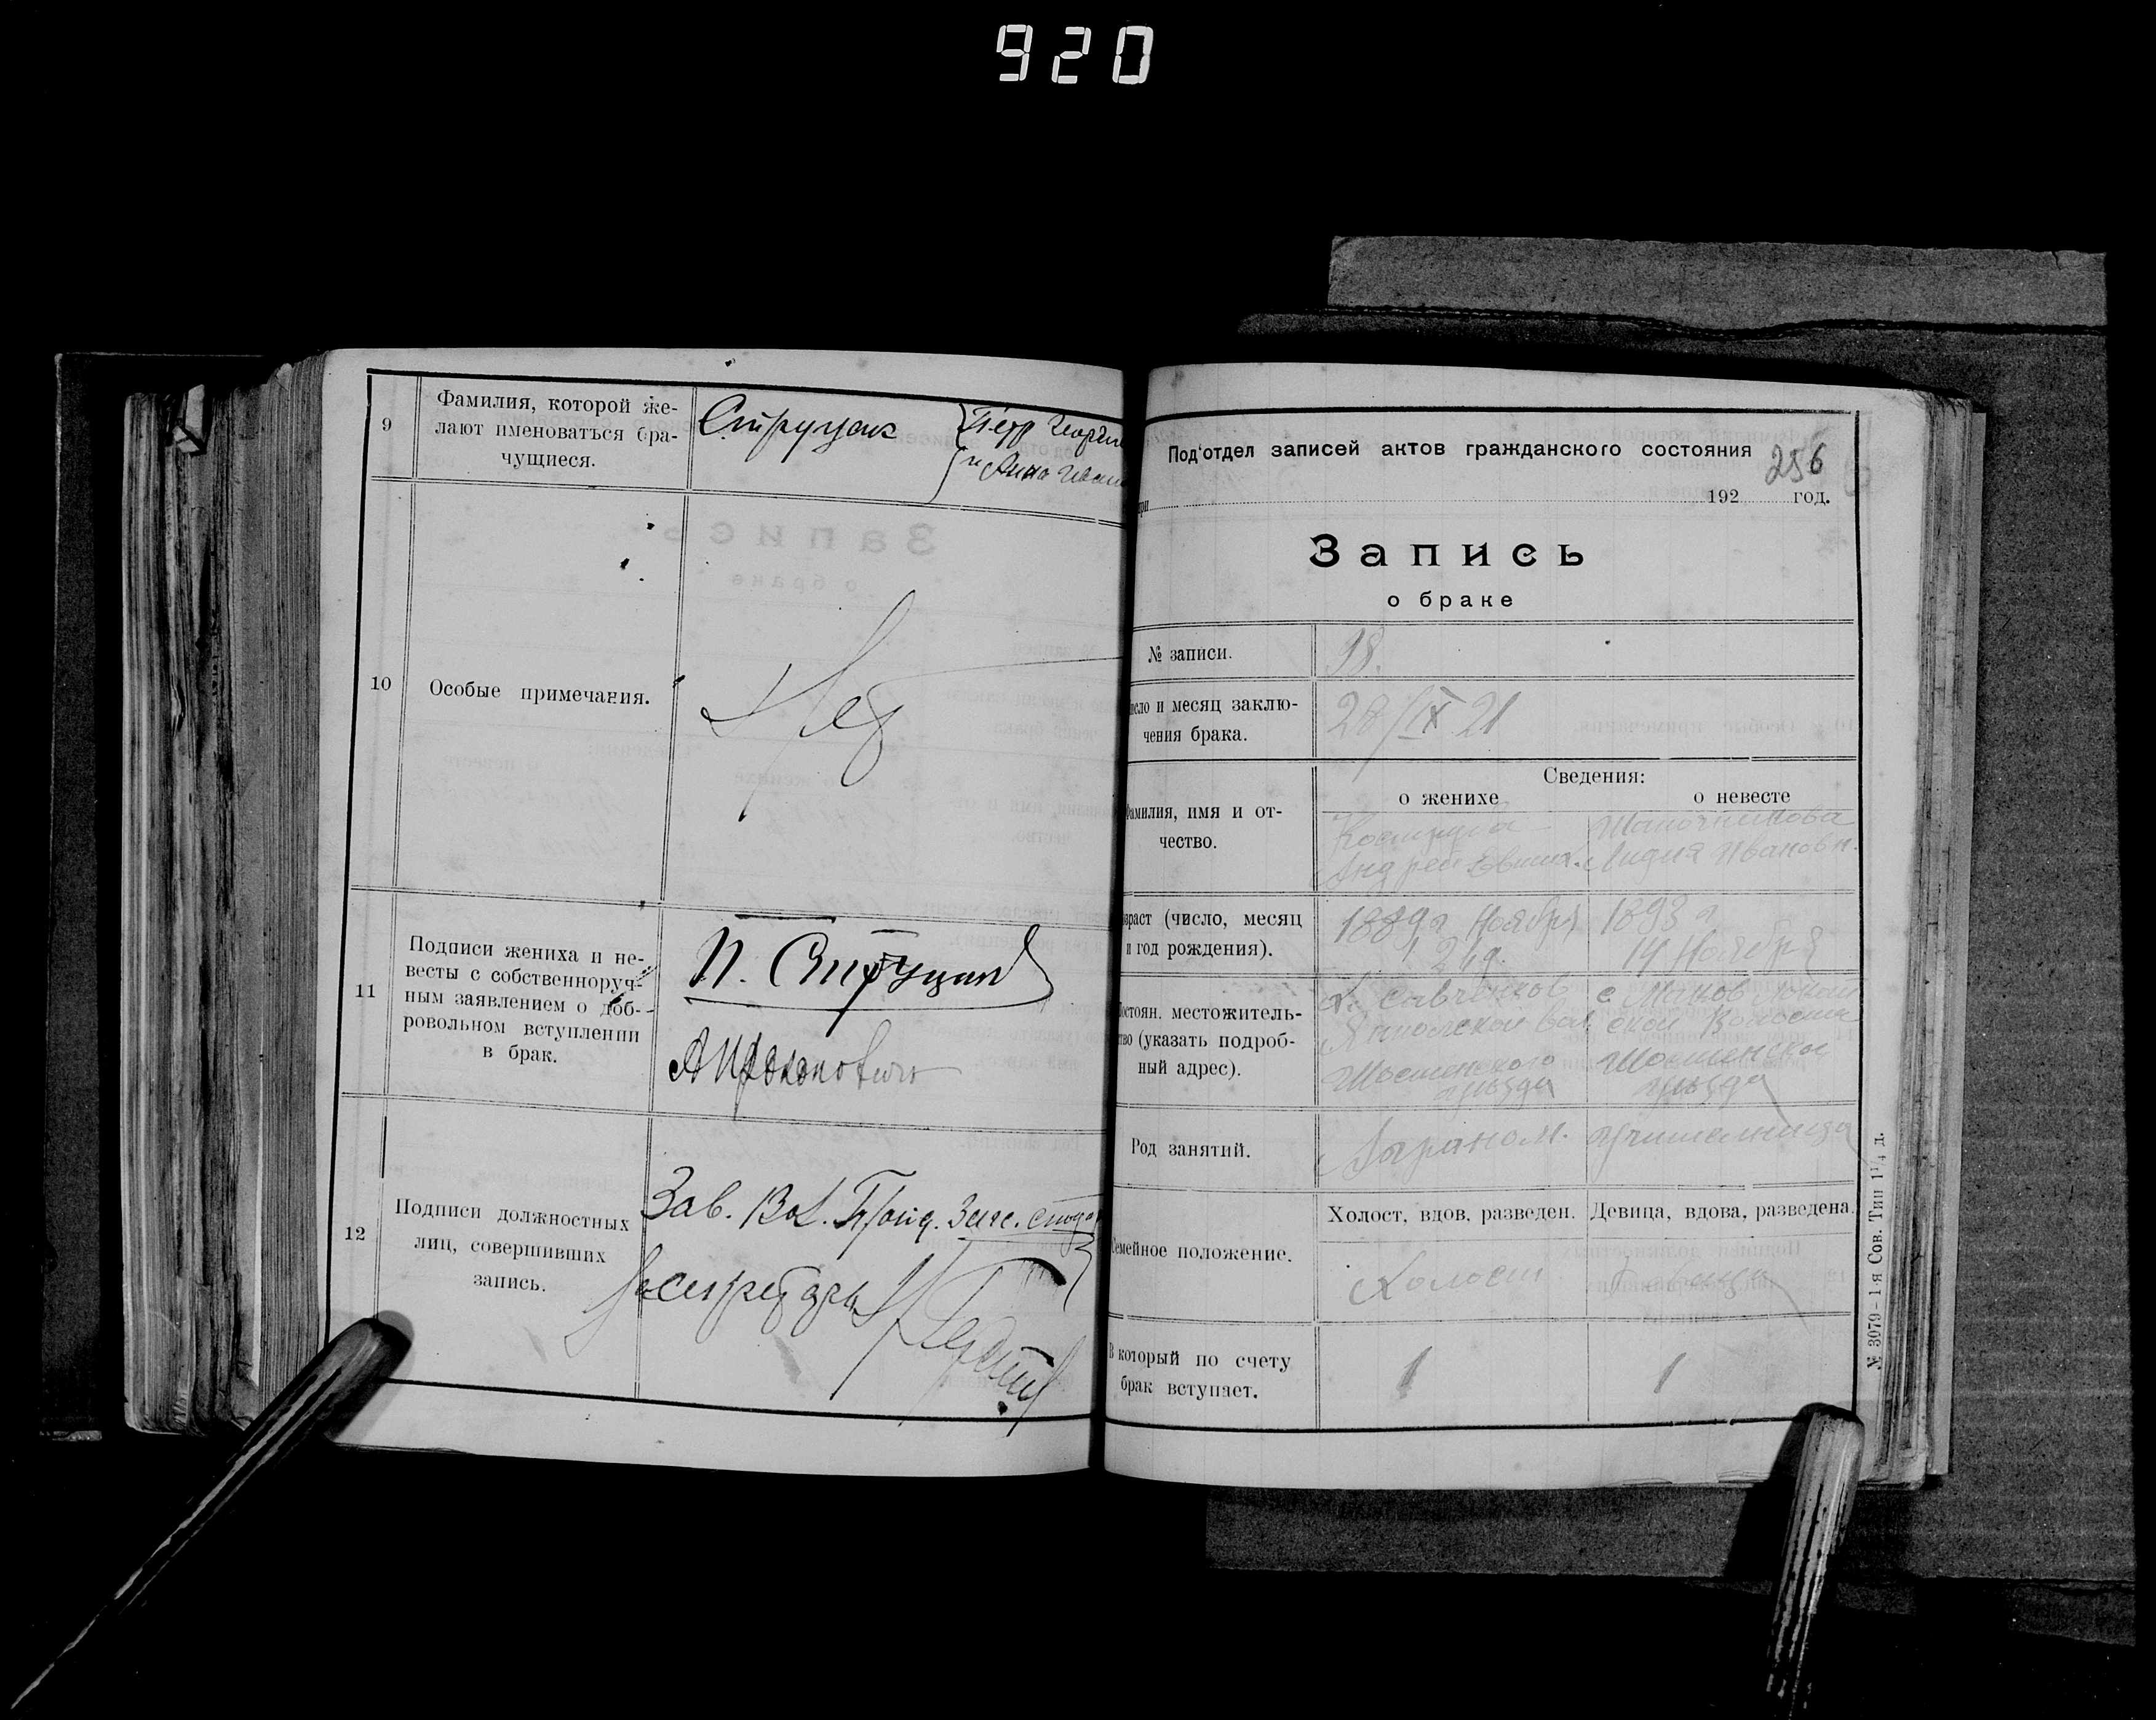 920
9
Фамилия, которой же-
лают именоваться бра-
чущиеся.
Струцак
Петр Георгие
и Анна Иван
10
Особые примечания.
Нет
11
Подписи жениха и не-
весты с собственноруч-
ным заявлением о доб-
ровольном вступлении
в брак.
П. Струцак
12
Подписи должностных
лиц, совершивших
запись.
Зав. Вол.
Секретарь
Под'отдел записей актов гражданского состояния
256
при 192 год.
Запись
о браке
№ записи.
98.
число и месяц заклю-
чения брака.
28/IX 21
Сведения:
о женихе
о невесте
Фамилия, имя и от-
чество.
Кострыба
Андрей
Шапочникова
Лидия Ивановн.
Возраст (число, месяц
и год рождения).
1889 г Ноября
1893 г
14 Ноября
Постоян. местожитель-
ство (указать подроб-
ный адрес).
Х. Савченков
Ямпольской вол.
Шостенского
уезда
с Маков Локот
ской Волости
Шостенска
уезда
Род занятий.
Аграном.
учительница
Семейное положение.
Холост, вдов, разведен.
Девица, вдова, разведена.
Холост
Девица
В который по счету
брак вступает.
1
1
№ 3079-1-я Сов. Тип 1 1/4 д.